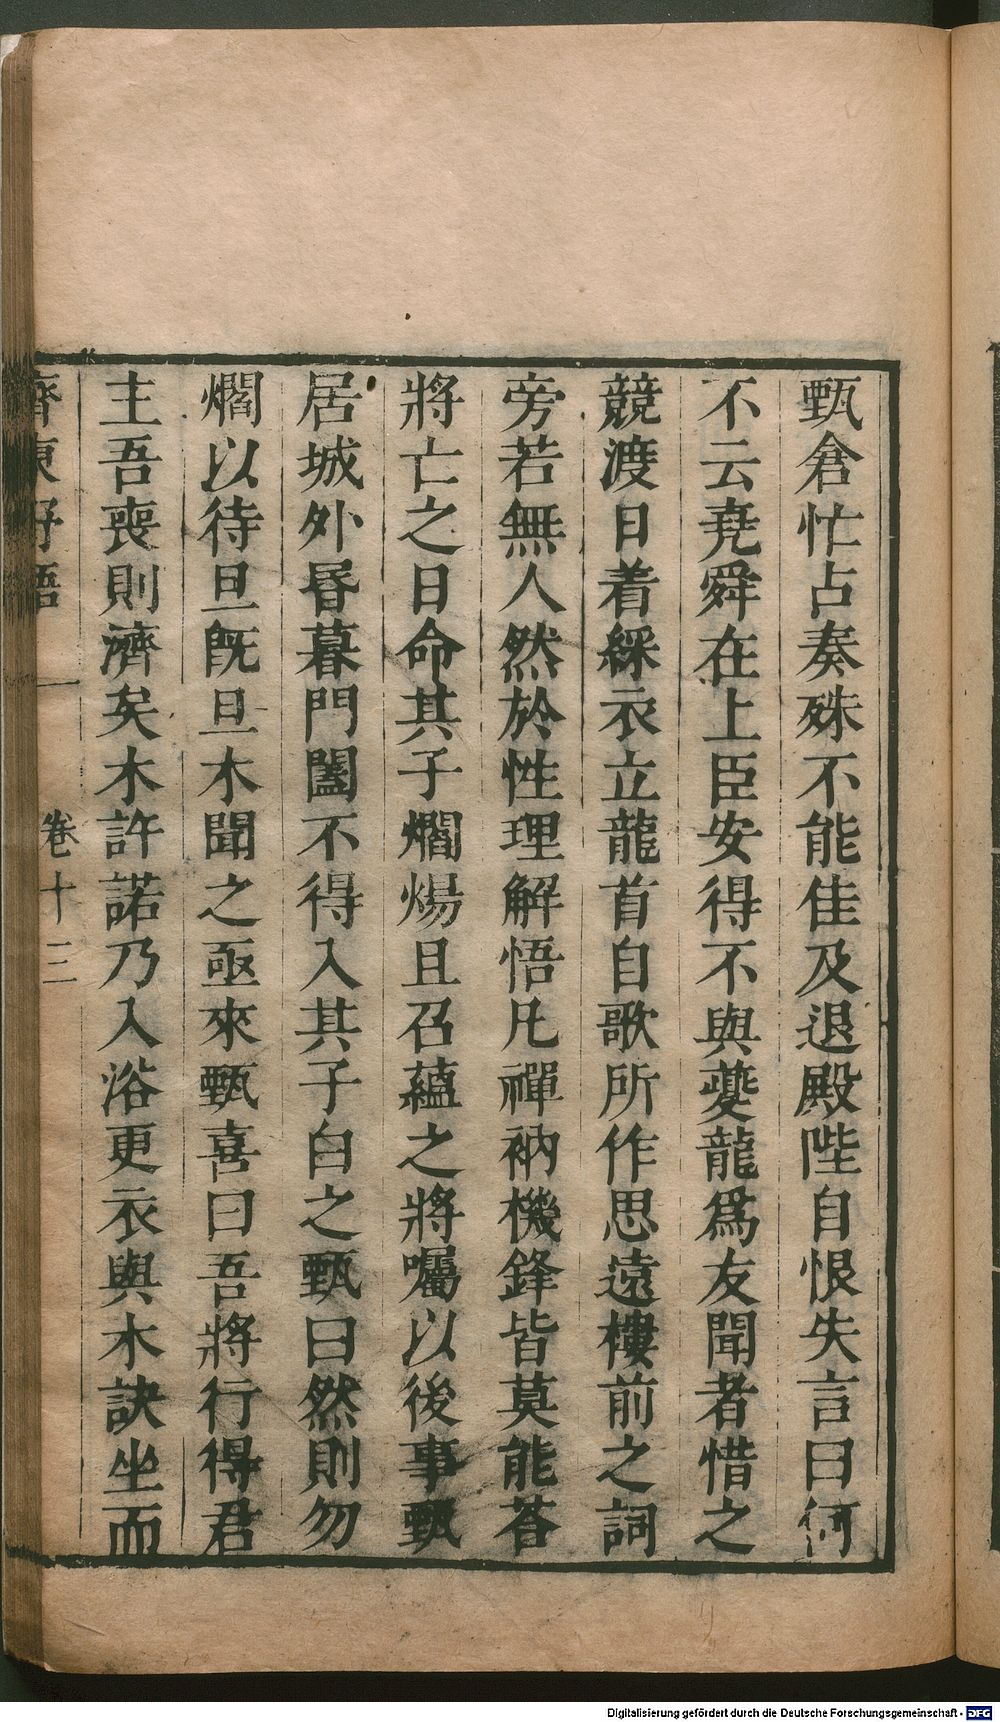 甄倉忙占奏殊不能佳及退殿陛自恨失言曰何
不云堯舜在上臣安得不與夔龍爲友聞者惜之
競渡日着綵衣立龍首自歌所作思遠樓前之詞
旁若無人然於性理解悟凡禪衲機鋒皆莫能荅
將亡之日命其子爓煬且召蘊之將囑以後事甄
居城外昬暮門闔不得入其子白之甄曰然則勿
爓以待旦旣旦木聞之亟來甄喜曰吾將行得君
主吾喪則濟矣木許諾乃入浴更衣與木訣坐而
齊東野語 卷十三
Digitalisierung gefördert durch die Deutsche Forschungsgemeinschaft - DFG